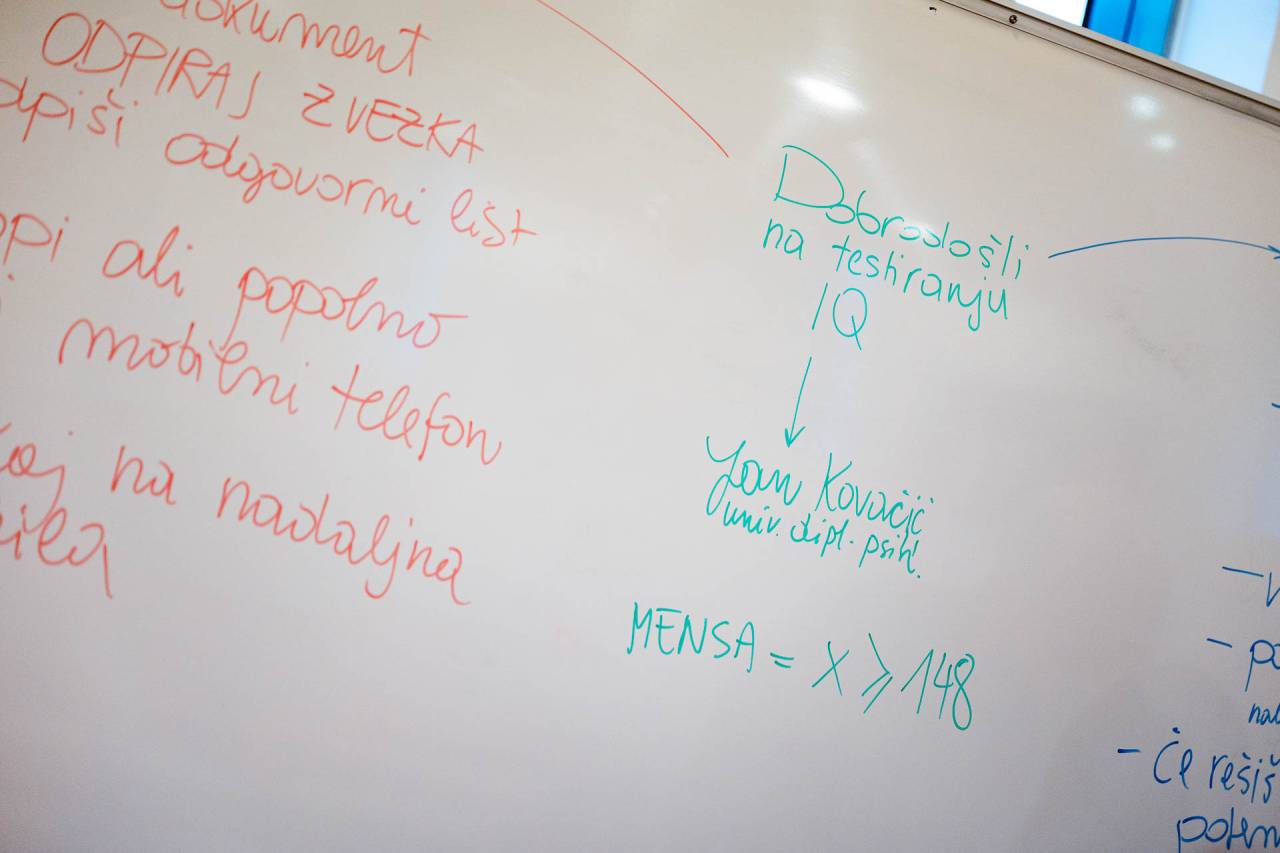 dokument
ODPIRAJ ZVEZKA
odgovorni list
ali popolno
mobilni telefon
na nadaljna
Dobrodošli
na testiranju
IQ
Jan Kovačič
univ. dipl. psih.
MENSA = X ≥ 148
- Če rešiš